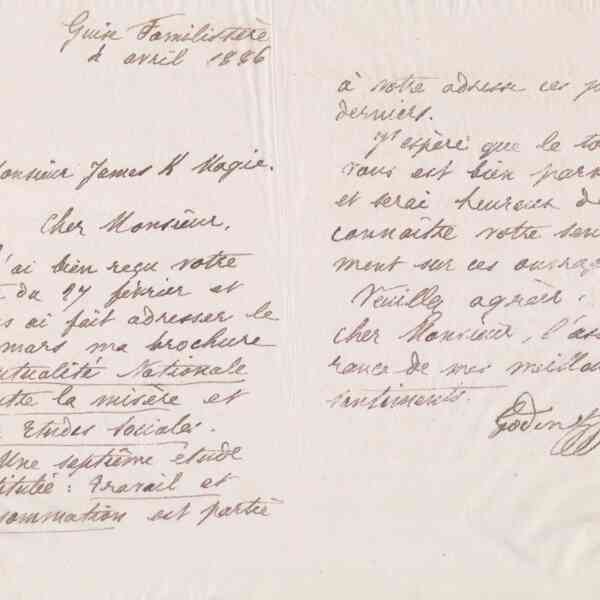 Guise Familistère
2 avril 1886
Monsieur James K Magie.
Cher Monsieur,
J'ai bien reçu votre
du 27 février et
ai fait adresser le
mars ma brochure
Mutualité Nationale
la misère et
Etudes sociales.
Une septième étude
: Travail et
sommation est partie
à votre adresse ces
derniers.
J'espère que le
vous est bien
et serai heureux de
connaître votre sen
ment sur ces ouvrag
Veuillez agréer,
cher Monsieur, l'as
rance de mes meilleu
sentiments.
Godin